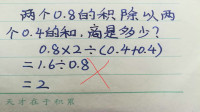 两个0.8的积除以两
个0.4的和,商是多少?
0.8×2÷(0.4+0.4)
=1.6÷0.8
=2
天才在于积累